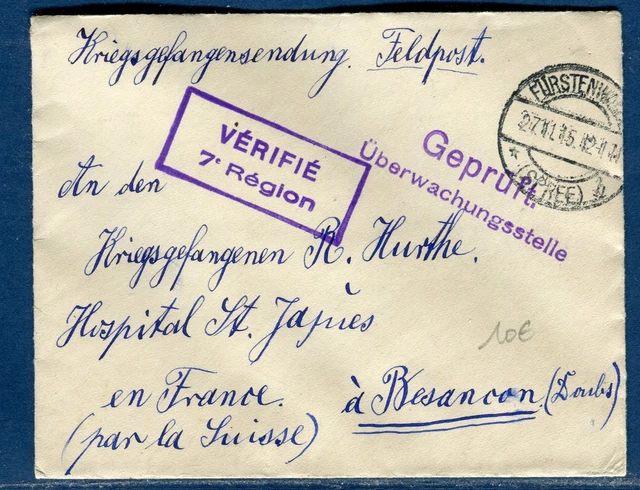 Kriegsgefangensendung. Feldpost.
FÜRSTENWA
27.11.15.
(SPREE)
VÉRIFIÉ
7e Région
Geprüft.
Überwachungsstelle
An den
Kriegsgefangenen R. Hurthe.
Hospital St. Jaques
en France. à Besancon (Doubs)
(par la Suisse)
10€